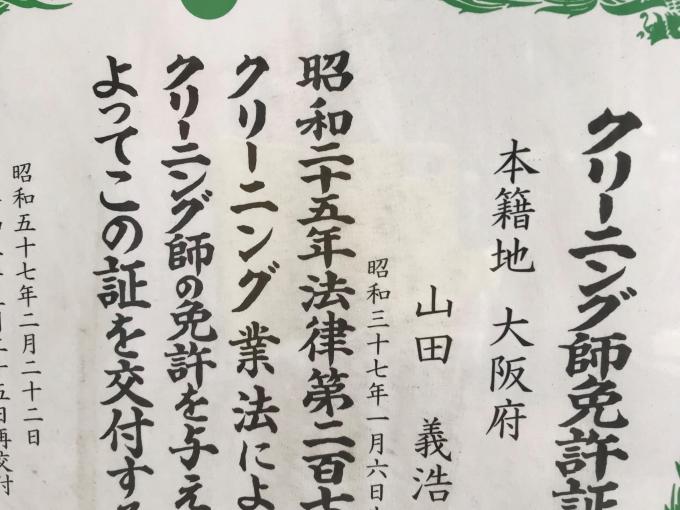 クリーニング師免許証
本籍地 大阪府
山田 義浩
昭和三十七年一月六日
昭和二十五年法律第二百七
クリーニング業法によ
クリーニング師の免許を与え
よってこの証を交付する
昭和五十七年二月二十二日
五日再交付